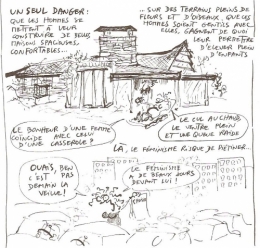 UN SEUL DANGER:
QUE LES HOMMES SE
METTENT À LEUR
CONSTRUIRE DE BELLES
MAISONS SPACIEUSES,
CONFORTABLES...
... SUR DES TERRAINS PLEINS DE
FLEURS ET D'OISEAUX, QUE CES
HOMMES SOIENT GENTILS AVEC
ELLES, GAGNENT DE QUOI
LEUR PERMETTRE
D'ÉLEVER PLEIN
D'ENFANTS
LE BONHEUR D'UNE FEMME
COÏNCIDE AVEC CELUI
D'UNE CASSEROLE?
LE CUL AU CHAUD
LE VENTRE PLEIN
ET LA QUEUE RAIDE
LÀ, LE FÉMINISME RISQUE DE PIÉTINER...
OUAIS, BEN
C'EST PAS
DEMAIN LA
VEILLE!
LE FÉMINISME
A DE BEAUX JOURS
DEVANT LUI!